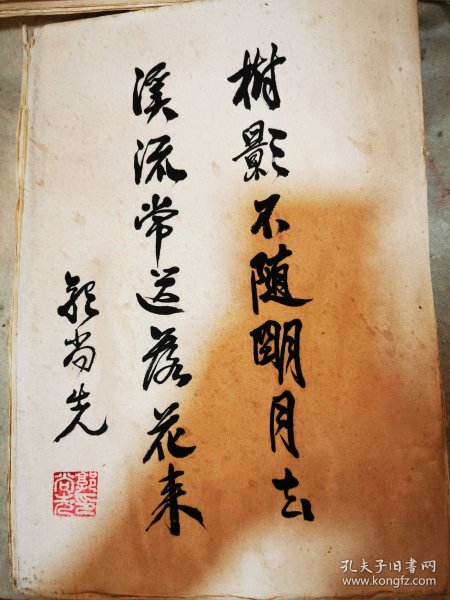 樹影不随明月去
溪流常送落花来
郭尚先
郭尚先印
孔夫子旧书网
www.kongfz.com